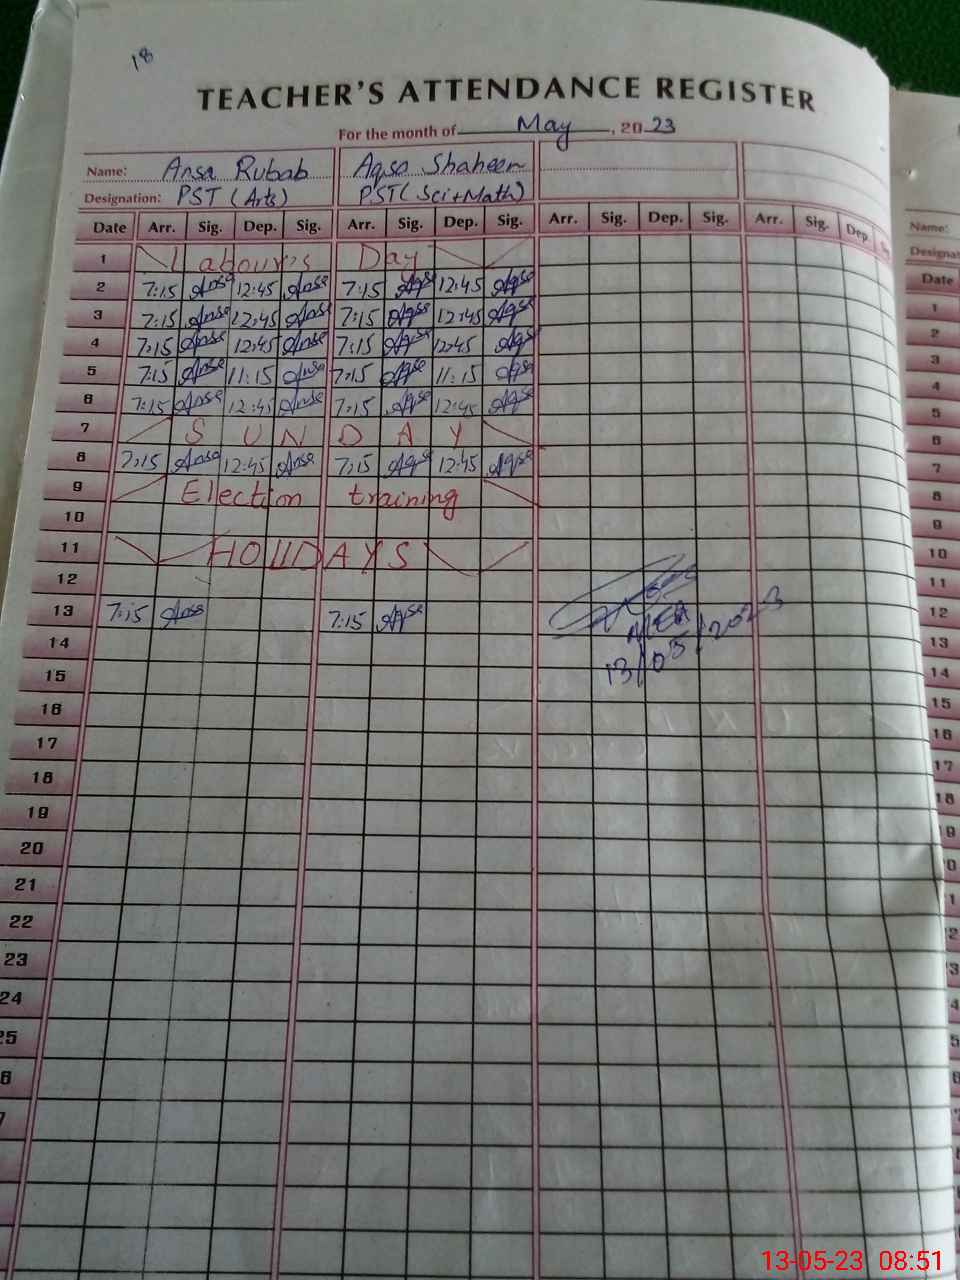 18
TEACHER'S ATTENDANCE REGISTER
For the month of May, 2023
Name: Ansa Rubab Aqsa Shaheen
Designation: PST (Arts) PST (Sci+Math)
Date Arr. Sig. Dep. Sig. Arr. Sig. Dep. Sig. Arr. Sig. Dep. Sig. Arr. Sig. Dep.
1 Labour's Day
2 7:15 Ansa 12:45 Ansa 7:15 Aqsa 12:45 Aqsa
3 7:15 Ansa 12:45 Ansa 7:15 Aqsa 12:45 Aqsa
4 7:15 Ansa 12:45 Ansa 7:15 Aqsa 12:45 Aqsa
5 7:15 Ansa 11:15 Ansa 7:15 Aqsa 11:15 Aqsa
6 7:15 Ansa 12:45 Ansa 7:15 Aqsa 12:45 Aqsa
7 SUNDAY
8 7:15 Ansa 12:45 Ansa 7:15 Aqsa 12:45 Aqsa
9 Election training
10
11 HOLIDAYS
12
13 7:15 Ansa 7:15 Aqsa
MEA
13/05/2023
14
15
16
17
18
19
20
21
22
23
24
25
6
7
Name:
Designat
Date
1
2
3
4
5
6
7
8
9
10
11
12
13
14
15
16
17
18
19
0
1
2
3
4
5
6
13-05-23 08:51